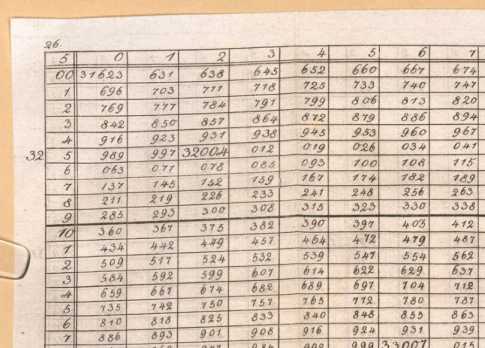 26
5 0 1 2 3 4 5 6 7
00 31623 631 638 645 652 660 667 674
1 696 703 711 718 725 733 740 747
2 769 777 784 791 799 806 813 820
3 842 850 857 864 872 879 886 894
4 916 923 931 938 945 953 960 967
32 5 989 997 32004 012 019 026 034 041
6 063 071 078 085 093 100 108 115
7 137 145 152 159 167 174 182 189
8 211 219 226 233 241 248 256 263
9 285 293 300 308 315 323 330 338
10 360 367 375 382 390 397 405 412
1 434 442 449 457 464 472 479 487
2 509 517 524 532 539 547 554 562
3 584 592 599 607 614 622 629 637
4 659 667 674 682 689 697 704 712
5 735 742 750 757 765 772 780 787
6 810 818 825 833 840 848 855 863
7 886 893 901 908 916 924 931 939
999 33007 015